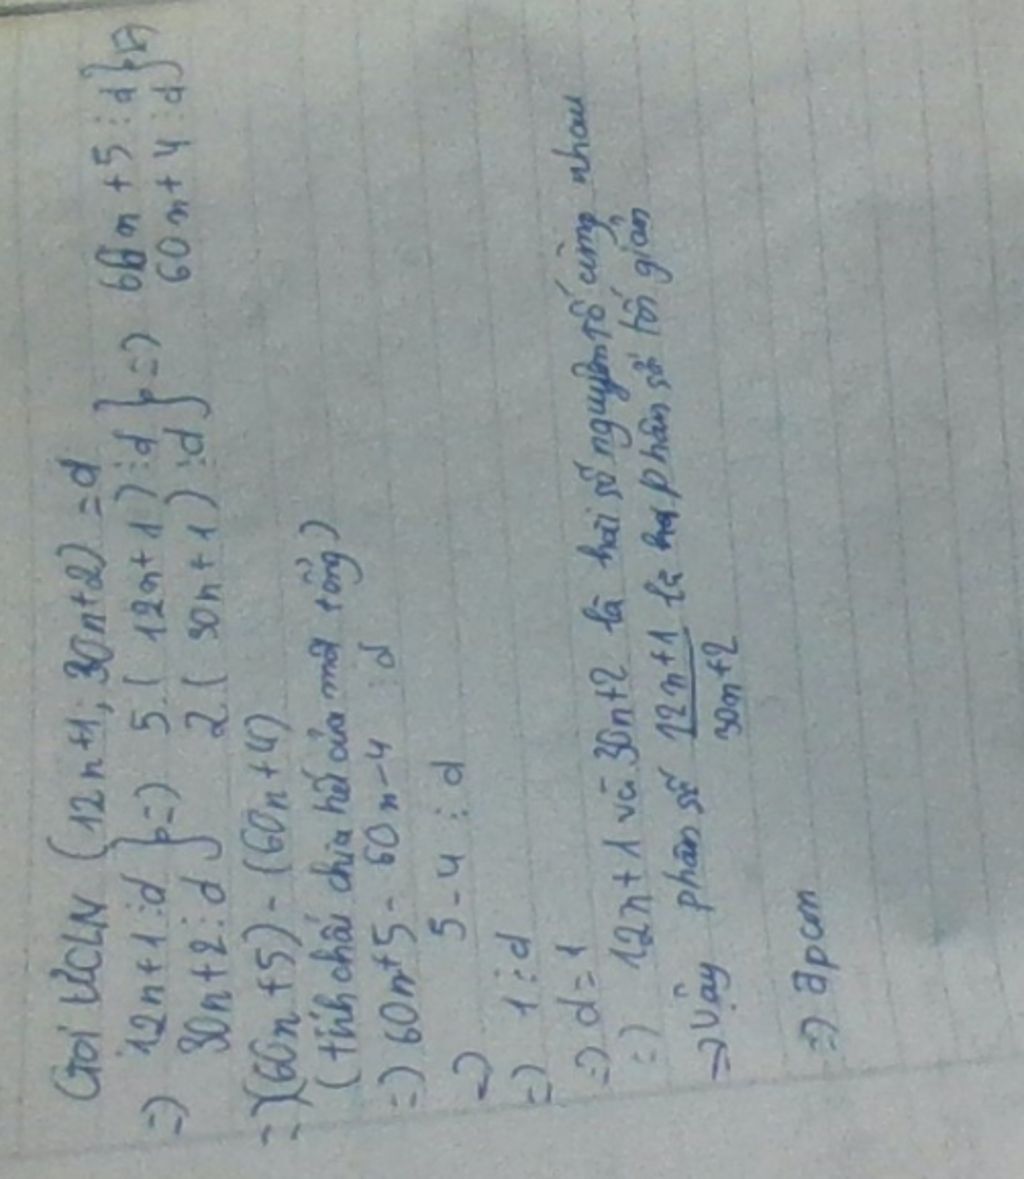 Gọi ƯCLN (12n+1; 30n+2) = d
=) 12n+1 ⋮ d } =) 5.(12n+1) ⋮ d } =) 60n+5 ⋮ d }
30n+2 ⋮ d } 2.(30n+1) ⋮ d } 60n+4 ⋮ d }
=) (60n+5) - (60n+4)
(tính chất chia hết của một tổng)
=) 60n+5 - 60n-4 ⋮ d
=) 5-4 ⋮ d
=) 1 ⋮ d
=) d = 1
=) 12n+1 và 30n+2 là hai số nguyên tố cùng nhau
=) Vậy phân số 12n+1/30n+2 là phân số tối giản
=) đpcm